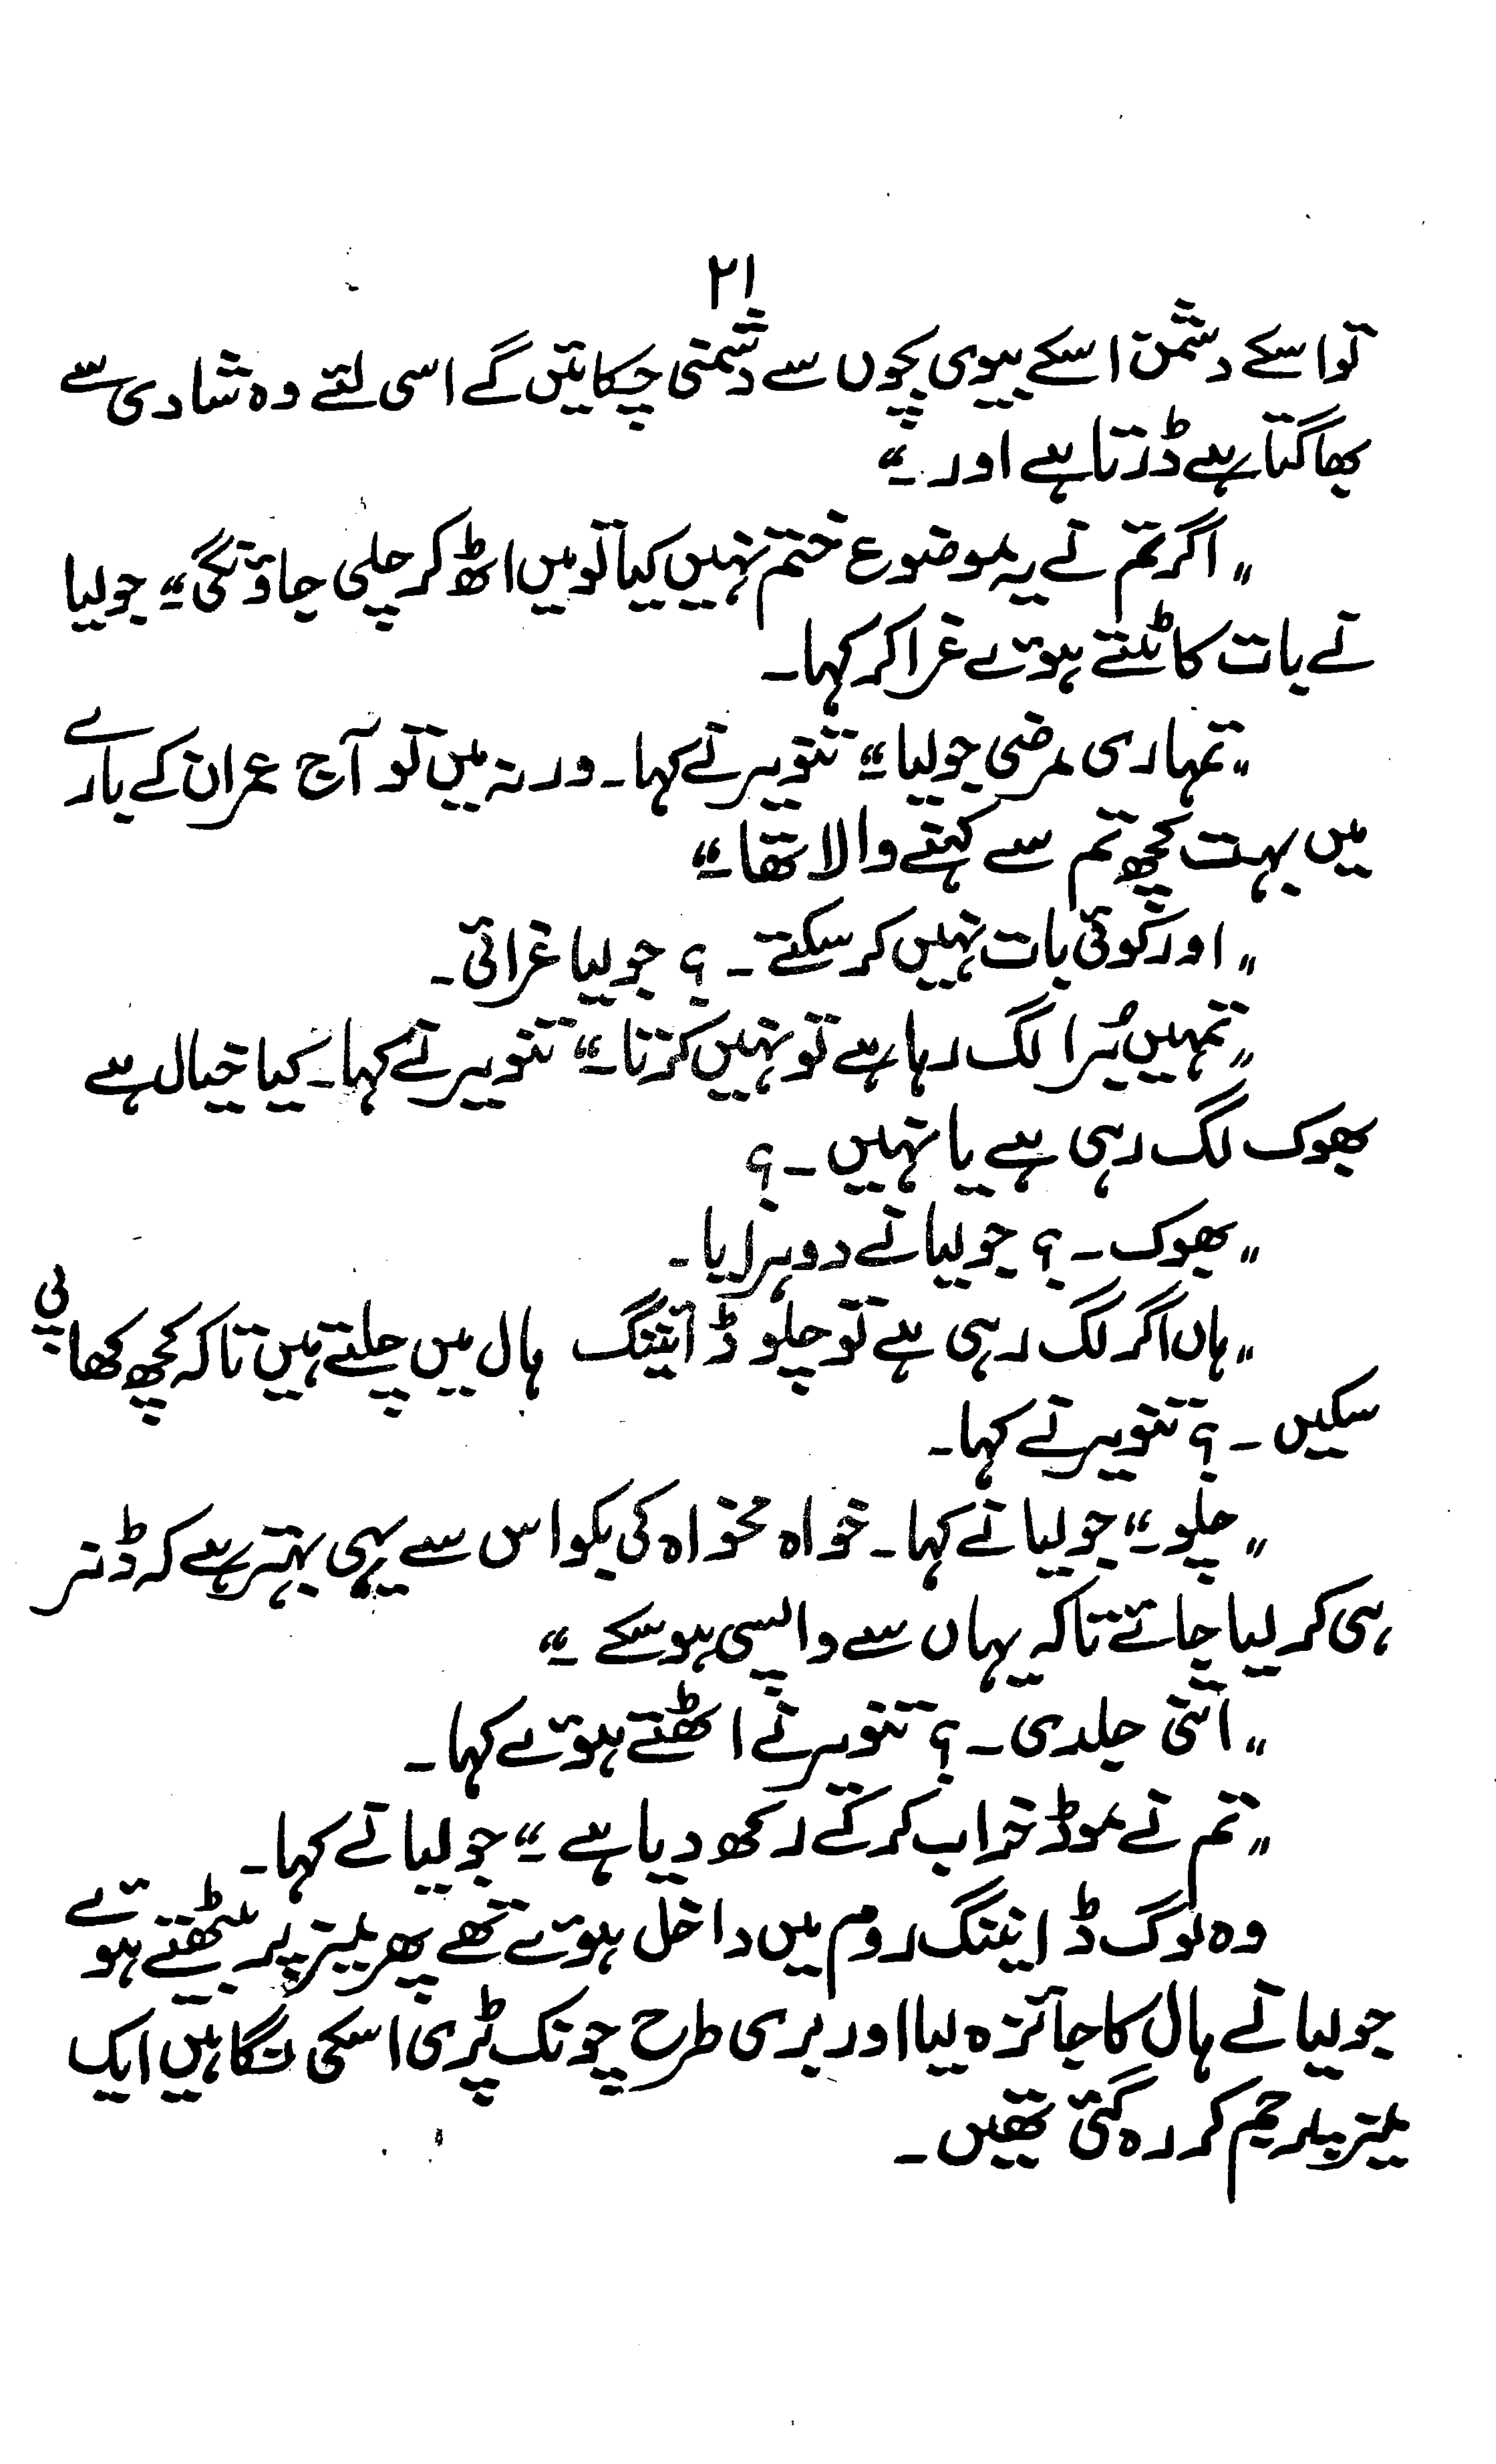 ۲۱
تو اسکے دشمن اسکے بیوی بچوں سے دشمنی چکائیں گے اسی لئے وہ شادی سے
بھاگتا ہے ڈرتا ہے اور ۔"
" اگر تم نے یہ موضوع ختم نہیں کیا تو میں اٹھ کر چلی جاؤنگی ۔" جولیا
نے بات کاٹتے ہوئے غرا کر کہا۔
" تمہاری مرضی جولیا ۔" تنویر نے کہا۔ ورنہ میں تو آج عمران کے بارے
میں بہت کچھ تم سے کہنے والا تھا ۔"
" اور کوئی بات نہیں کر سکتے ۔ ؟ جولیا غرائی ۔
" تمہیں بُرا لگ رہا ہے تو نہیں کرتا ۔" تنویر نے کہا۔ کیا خیال ہے
بھوک لگ رہی ہے یا نہیں ۔ ؟
" بھوک ۔ ؟ جولیا نے دوہرایا ۔
" ہاں اگر لگ رہی ہے تو چلو ڈائننگ ہال میں چلتے ہیں تاکہ کچھ کھا پی
سکیں ۔ ؟ تنویر نے کہا ۔
" چلو ۔" جولیا نے کہا ۔ خواہ مخواہ کی بکواس سے یہی بہتر ہے کہ ڈنر
ہی کر لیا جائے تاکہ یہاں سے واپسی ہو سکے ۔"
" اتنی جلدی ۔ ؟ تنویر نے اٹھتے ہوئے کہا ۔
" تم نے موڈ خراب کر کے رکھ دیا ہے ۔" جولیا نے کہا ۔
وہ لوگ ڈائننگ روم میں داخل ہوئے تھے پھر میز پر بیٹھتے ہوئے
جولیا نے ہال کا جائزہ لیا اور بری طرح چونک پڑی اسکی نگاہیں ایک
میز پر جم کر رہ گئی تھیں ۔